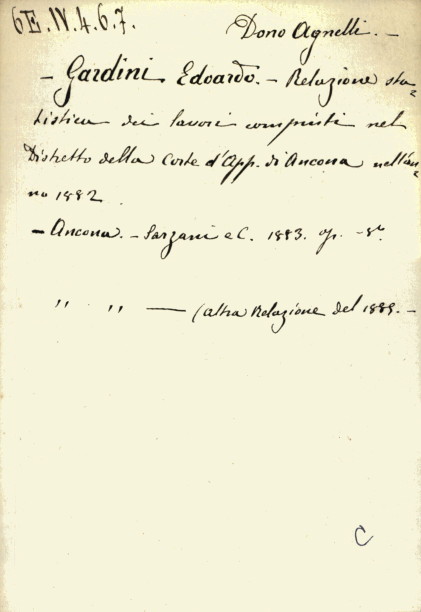 6E.IV.4.6.7.
Dono Agnelli. -
- Gardini Edoardo. - Relazione sta=
tistica dei lavori compiuti nel
Distretto della Corte d'App. di Ancona nell'an=
no 1882
- Ancona. - Sarzani e C. 1883. op. - 8°.
" " — (altra Relazione del 1885. -
C